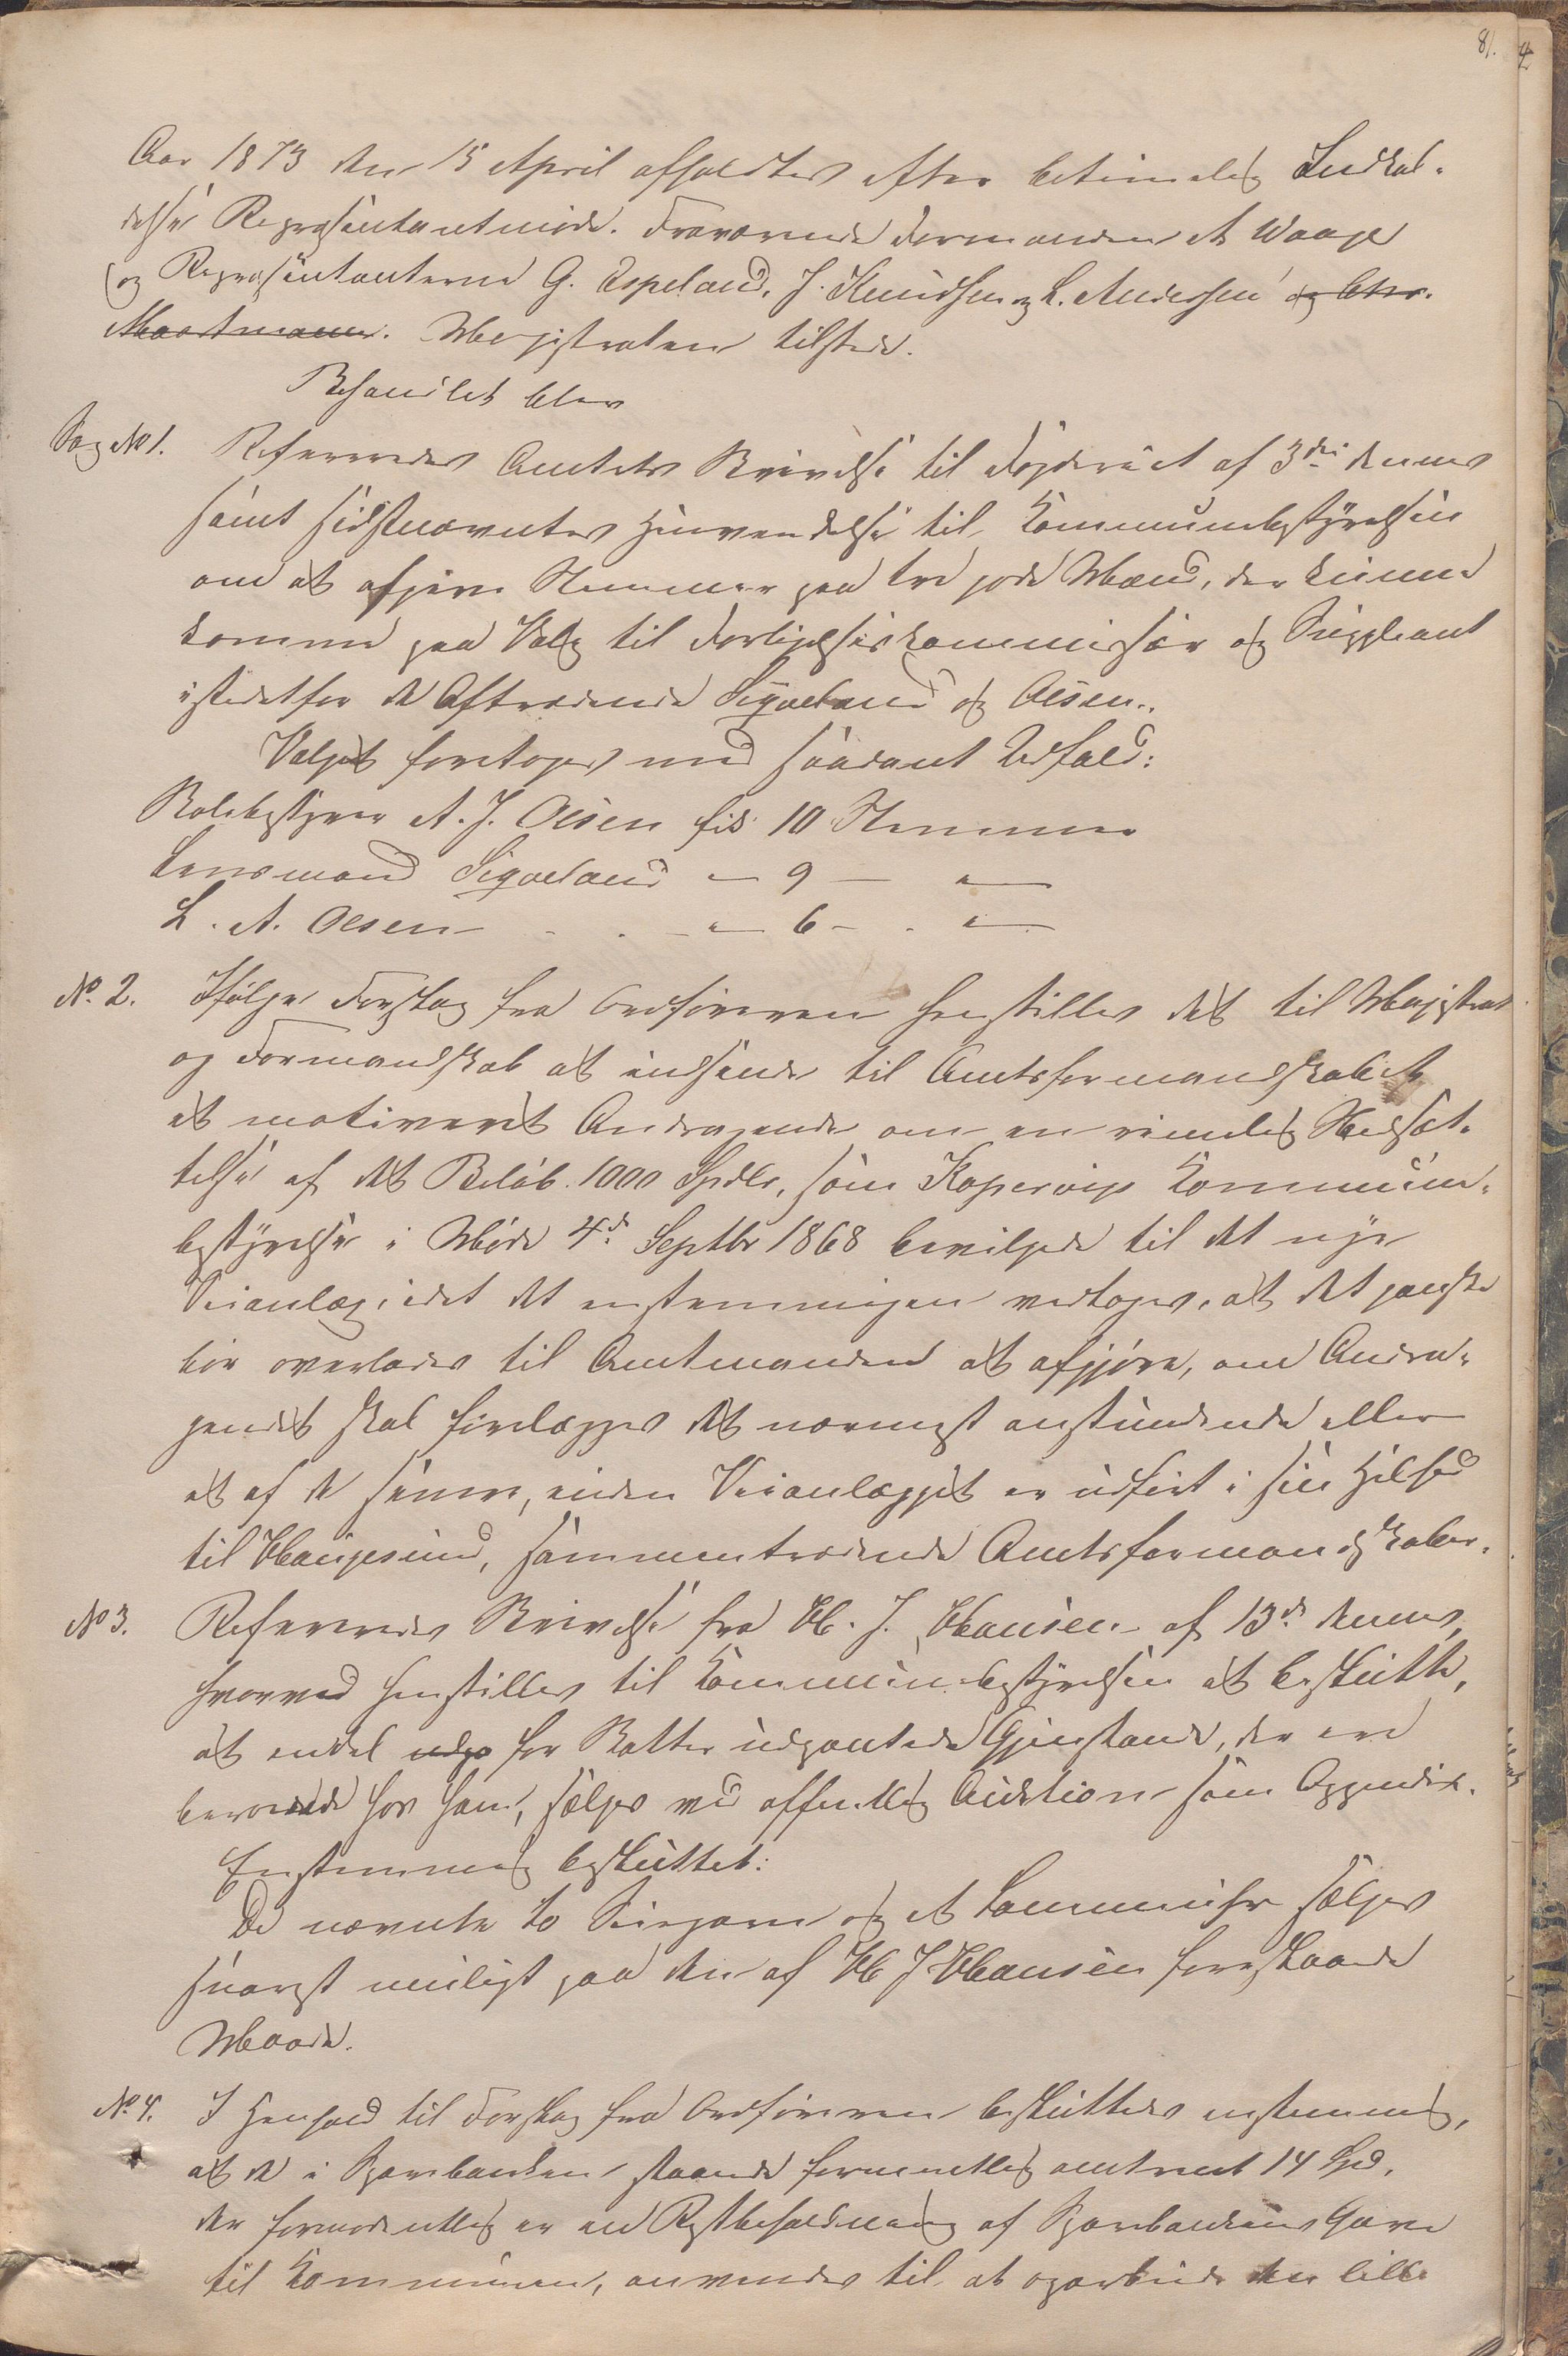 81.
Aar 1873 den 15 April afholdtes efter betimelig Indkal-
delse Repræsentantmøde. Fraværende Formanden A Waage
og Repræsentanterne G. Espeland, J. Knudsen og L. Andersen og Chr.
Maartmann. Magistraten tilstede.
Behandlet blev
Sag No 1. Refereredes Amtets Skrivelse til Fogderiet af 3die dennes
samt sidstnævntes Henvendelse til Kommunebestyrelsen
om at afgive Stemmer paa tre gode Mænd, der kunne
komme paa Valg til Forligelseskommissær og Suppleant
istedetfor de Aftrædende Sigveland og Olsen.
Valget foretoges med saadant Udfald:
Skolebestyrer A. J. Olsen fik 10 Stemmer
Lensmand Sigveland " 9 — "
L. A. Olsen - . - " 6 - . "
No. 2. Ifølge Forslag fra Ordføreren henstilles det til Magistrat
og Formandskab at indsende til Amtsformandskabet
et motiveret Andragende om en rimelig Nedsæt-
telse af det Beløb 1000 Spdlr, som Kopervigs Kommune-
bestyrelse i Møde 4de Septbr 1868 bevilgede til det nye
Veianlæg, idet det enstemmigen vedtoges, at det ganske
bør overlades til Amtmanden at afgjøre, om Andra-
gendet skal forelægges det nærmest anstundende eller
et af de senere, inden Veianlægget er udført i sin Helhed
til Haugesund, sammentrædende Amtsformandskaber.
No 3. Refereredes Skrivelse fra H. J. Hansen af 13de dennes,
hvorved henstilles til Kommunebestyrelsen at beslutte,
at endel udpa for Skatter udpantede Gjenstande, der ere
beroende hos ham, sælges ved offentlig Auktion som Appendix.
Enstemmig besluttet:
De nævnte to Seiegarn og et Lommeuhr sælges
snarest muligt paa den af H J Hansen foreslaaede
Maade.
No. 4. I Henhold til Forslag fra Ordføreren besluttedes enstemmig,
at de i Sparebanken staaende formentlig omtrent 14 Spd,
der formodentlig er en Restbeholdning af Sparebankens Gave
til Kommunen, anvendes til at oparbeide den lille